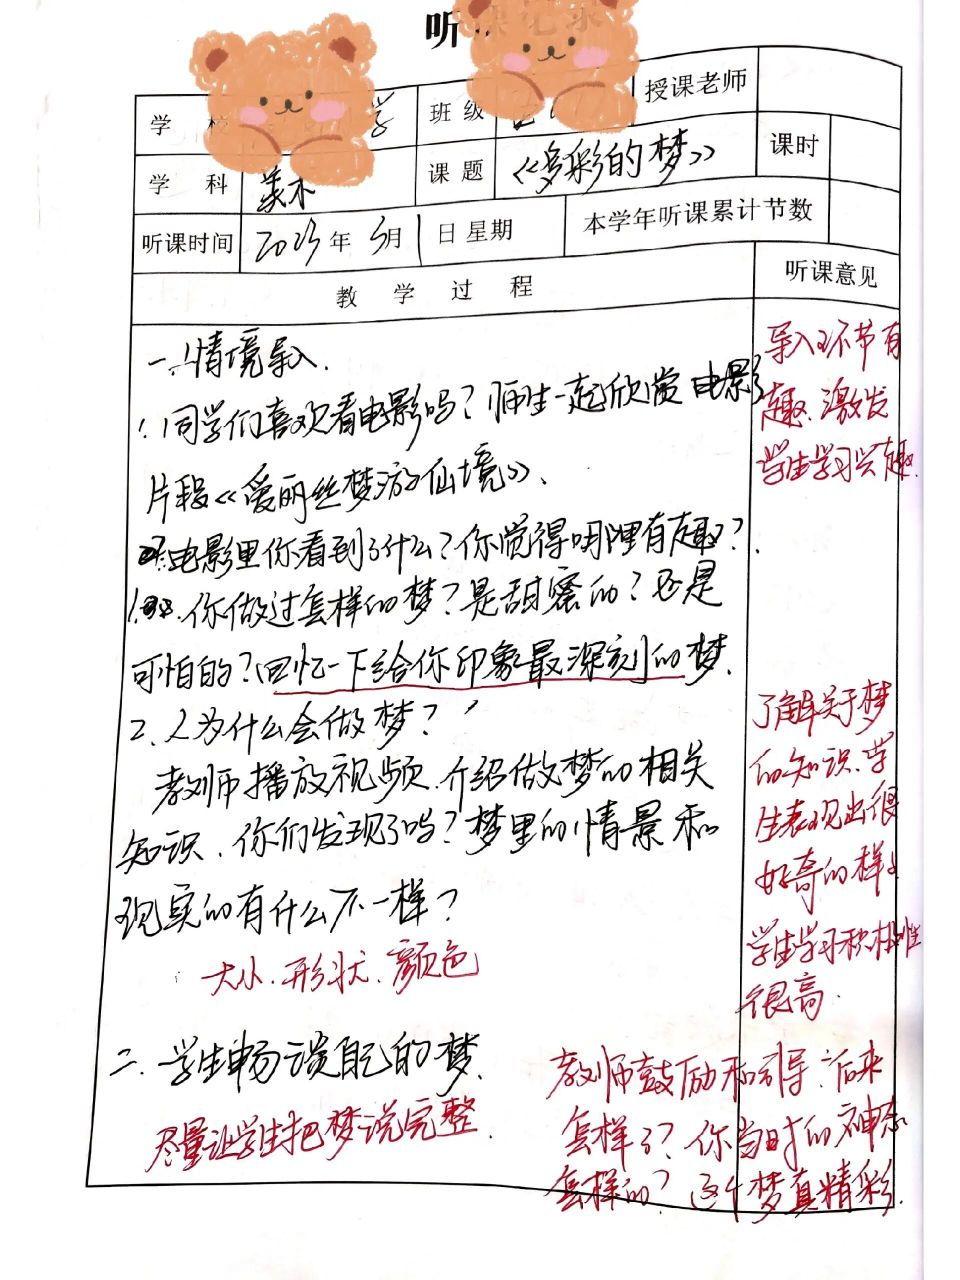 听课记录
学 校 学 班 级 授课老师
学 科 美术 课 题 《多彩的梦》 课时
听课时间 2023年5月1日 星期 本学年听课累计节数
教 学 过 程 听课意见
一、情境导入.
1.同学们喜欢看电影吗?师生一起欣赏电影
片段《爱丽丝梦游仙境》、
电影里你看到了什么?你觉得哪里有趣?
你做过怎样的梦?是甜蜜的?还是
可怕的?回忆一下给你印象最深刻的梦.
2、人为什么会做梦?
教师播放视频.介绍做梦的相关
知识、你们发现了吗?梦里的情景和
现实的有什么不一样?
大小.形状.颜色
二、学生畅谈自己的梦.
尽量让学生把梦说完整.
导入环节有
趣.激发
学生学习兴趣.
了解关于梦
的知识.学
生表现出很
好奇的样子
学生学习积极性
很高.
教师鼓励和引导:后来
怎样了?你当时的神态
怎样的?这个梦真精彩.